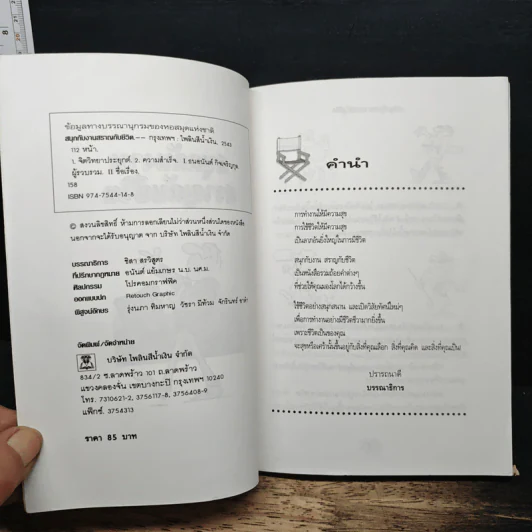 ข้อมูลทางบรรณานุกรมของหอสมุดแห่งชาติ
สนุกกับงานสราญกับชีวิต.-- กรุงเทพฯ : ไพลินสีน้ำเงิน, 2543
112 หน้า.
1. จิตวิทยาประยุกต์. 2. ความสำเร็จ. I. ธนอนันต์ กิจเจริญกุล
ผู้รวบรวม. II ชื่อเรื่อง.
158
ISBN 974-7544-14-8
© สงวนลิขสิทธิ์ ห้ามการลอกเลียนไม่ว่าส่วนหนึ่งส่วนใดของหนังสือ
นอกจากจะได้รับอนุญาต จาก บริษัท ไพลินสีน้ำเงิน จำกัด
บรรณาธิการ ชิสา สรวิสูตร
ที่ปรึกษากฎหมาย อนันต์ แย้มเกษร น.บ. นศ.ม.
ศิลปกรรม โปรคอมกราฟฟิค
ออกแบบปก Retouch Graphic
พิสูจน์อักษร รุ่งนภา พิมหาญ วัชรา มีท้วม จักรินทร์
จัดพิมพ์/จัดจำหน่าย
บริษัท ไพลินสีน้ำเงิน จำกัด
834/2 ซ.ลาดพร้าว 101 ถ.ลาดพร้าว
แขวงคลองจั่น เขตบางกะปิ กรุงเทพฯ 10240
โทร. 7310621-2, 3756117-8, 3756408-9
แฟ็กซ์. 3754313
ราคา 85 บาท
คำนำ
การทำงานให้มีความสุข
การใช้ชีวิตให้มีความสุข
เป็นลาภอันยิ่งใหญ่ในการมีชีวิต
สนุกกับงาน สราญกับชีวิต
เป็นหนังสือรวมถ้อยคำต่างๆ
ที่ช่วยให้คุณมองโลกได้กว้างขึ้น
ใช้ชีวิตอย่างสนุกสนาน และเปิดวิสัยทัศน์ใหม่ๆ
เพื่อการทำงานอย่างมีชีวิตชีวามากยิ่งขึ้น
เพราะชีวิตเป็นของคุณ
จะสุขหรือเศร้านั้นขึ้นอยู่กับสิ่งที่คุณเลือก สิ่งที่คุณคิด และสิ่งที่คุณเป็น!
ปรารถนาดี
บรรณาธิการ